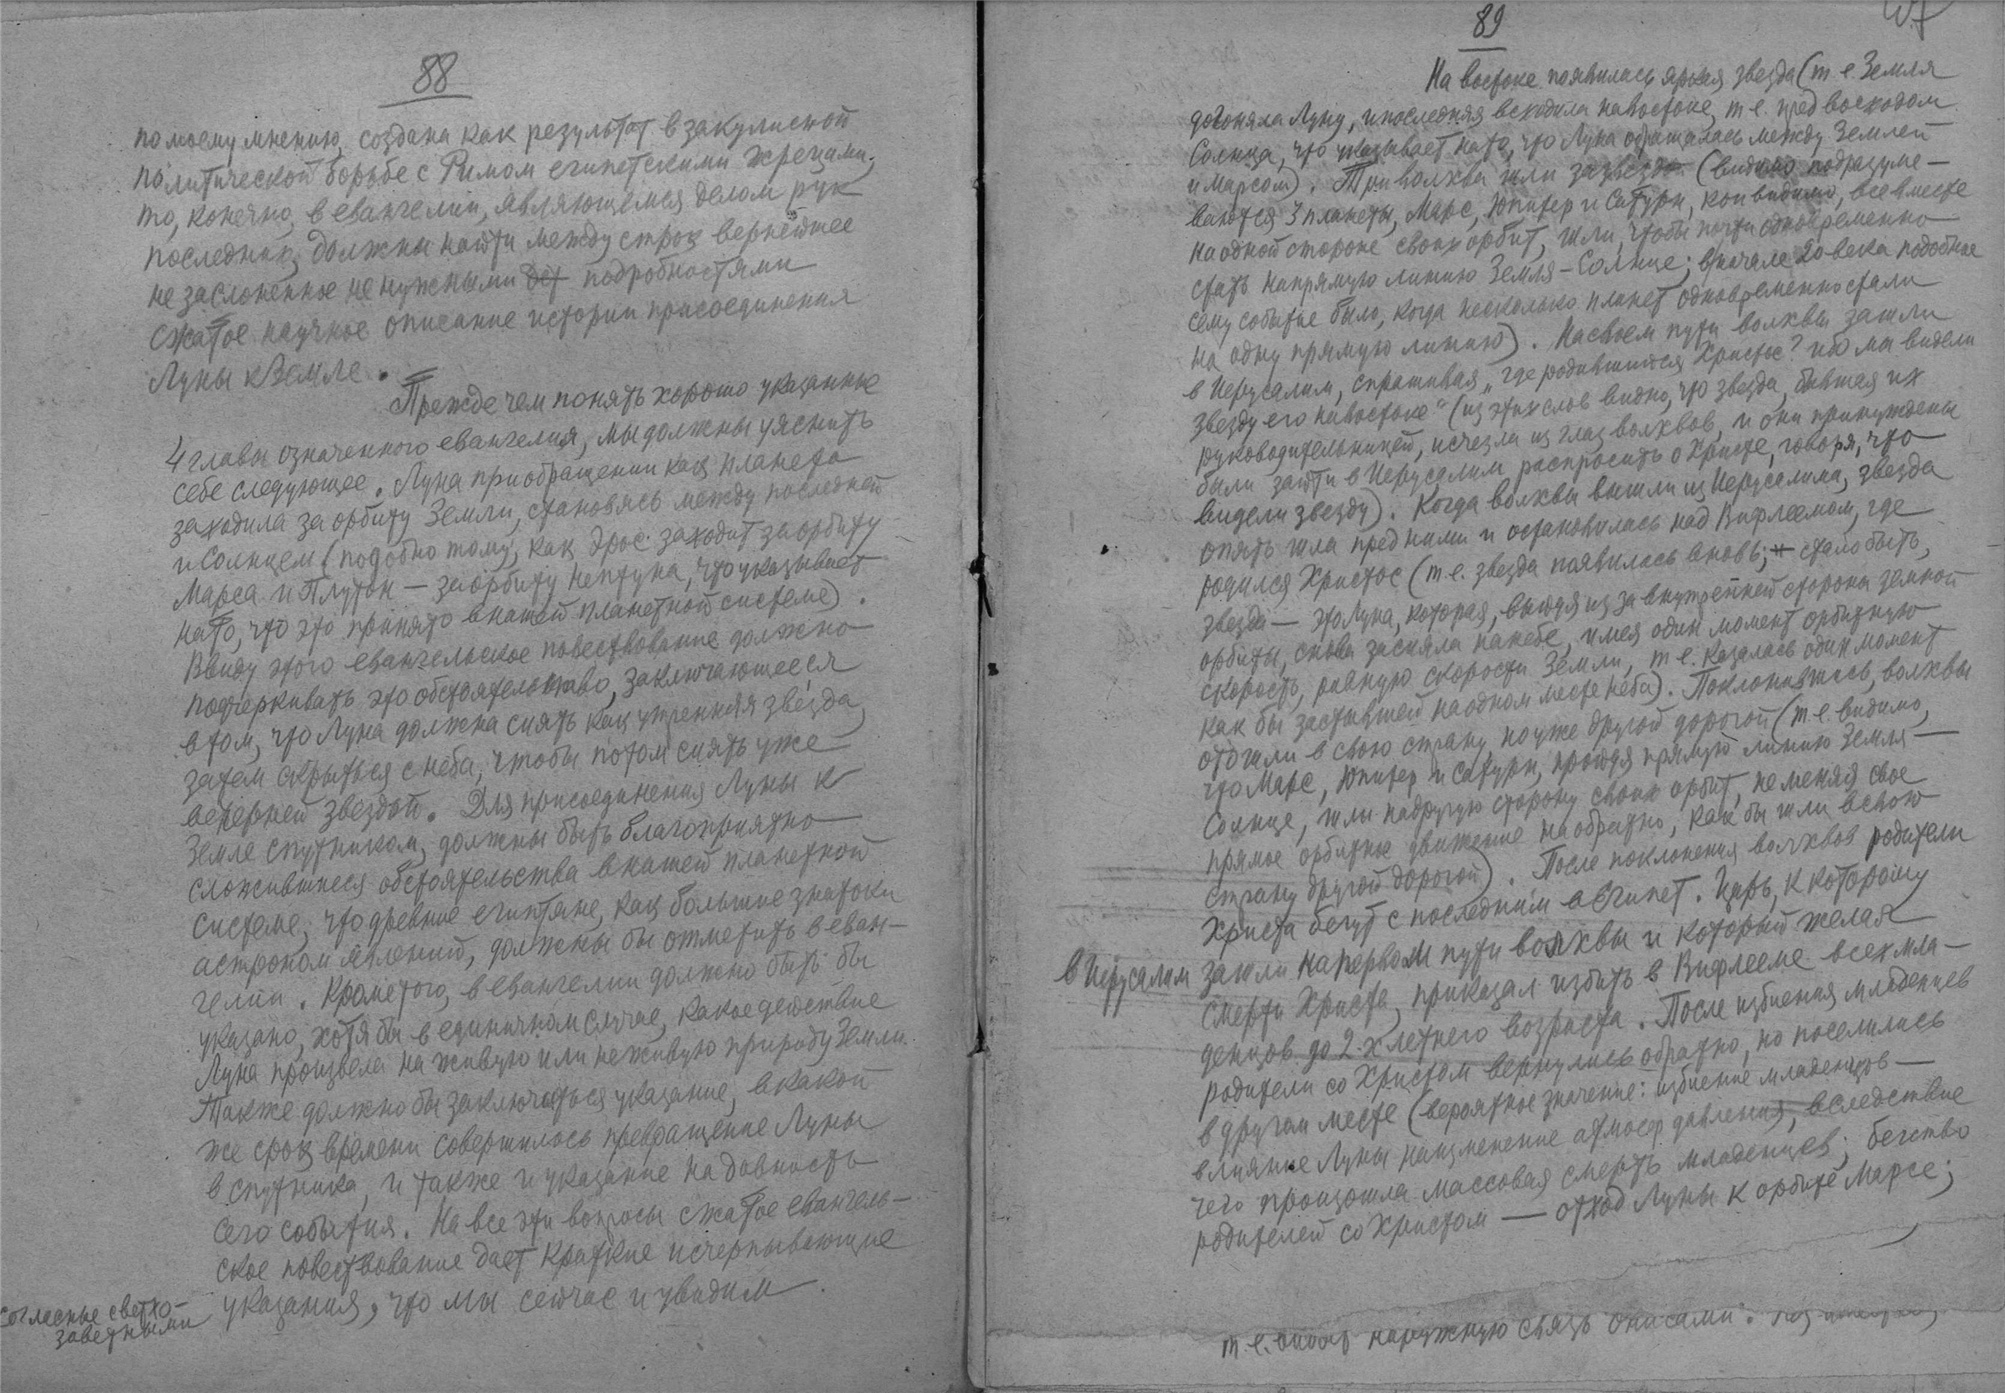 88
по моему мнению, создана как результат в закулисной
политической борьбе с Римом египетскими жрецами,
то, конечно, в евангелии, являющемся делом рук
последних, должны найти между строк вернейшее
не заслоненное ненужными подробностями
сжатое научное описание истории присоединения
Луны к Земле.
Прежде чем понять хорошо указанные
4 главы означенного евангелия, мы должны уяснить
себе следующее. Луна при обращении как планета
заходила за орбиту Земли, становясь между последней
и Солнцем (подобно тому, как Эрос заходит за орбиту
Марса и Плутон — за орбиту Нептуна, что указывает
на то, что это принято в нашей планетной системе).
Ввиду этого евангельское повествование должно
подчеркивать это обстоятельство, заключающееся
в том, что Луна должна сиять как утренняя звезда,
затем скрыться с неба, чтобы потом сиять уже
вечерней звездой. Для присоединения Луны к
Земле спутником, должны быть благоприятно
сложившиеся обстоятельства в нашей планетной
системе, что древние египтяне, как большие знатоки
астроном явлений, должны бы отметить в еван-
гелии. Кроме того, в евангелии должно быть бы
указано, хотя бы в единичном случае, какое действие
Луна произвела на живую или неживую природу Земли.
Также должно бы заключаться указание, в какой
же срок времени совершилось превращение Луны
в спутника, и также и указание на давность
сего события. На все эти вопросы сжатое евангель-
ское повествование дает краткие исчерпывающие
указания, что мы сейчас и увидим
согласные с ветхо-
заветными
89
На востоке появилась яркая звезда (т.е. Земля
догоняла Луну, и последняя всходила на востоке, т.е. пред восходом
Солнца, что указывает на то, что Луна обращалась между Землей
и Марсом). Три волхва шли за звездой (видимо подразуме-
ваются 3 планеты, Марс, Юпитер и Сатурн, кои видимо, все вместе
на одной стороне своих орбит, шли, чтобы почти одновременно
стать на прямую линию Земля-Солнце; в начале 20 века подобное
сему событие было, когда несколько планет одновременно стали
на одну прямую линию). На своем пути волхвы зашли
в Иерусалим, спрашивая „где родившийся Христос? ибо мы видели
звезду его на востоке" (из этих слов видно, что звезда, бывшая их
руководительницей, исчезла из глаз волхвов, и они принуждены
были зайти в Иерусалим распросить о Христе, говоря, что
видели звезду). Когда волхвы вышли из Иерусалима, звезда
опять шла пред ними и остановилась над Вифлеемом, где
родился Христос (т.е. звезда появилась вновь; стало быть,
звезда — это Луна, которая, выйдя из за внутренней стороны земной
орбиты, снова засияла на небе, имея один момент орбитную
скорость, равную скорости Земли, т.е. казалась один момент
как бы застывшей на одном месте неба). Поклонившись, волхвы
отошли в свою страну, но уже другой дорогой (т.е. видимо,
что Марс, Юпитер и Сатурн, пройдя прямую линию Земля —
Солнце, шли на другую сторону своих орбит, не меняя свое
прямое орбитное движение на обратно, как бы шли в свою
страну другой дорогой). После поклонения волхвов родители
Христа бегут с последним в Египет. Царь, к которому
в Иерусалим зашли на первом пути волхвы и который желая
смерти Христа, приказал избить в Вифлееме всех мла-
денцов до 2-х летнего возраста. После избиения младенцев
родители со Христом вернулись обратно, но поселились
в другом месте (вероятное значение: избиение младенцов —
влияние Луны на изменение атмосф давления, вследствие
чего произошла массовая смерть младенцев; бегство
родителей со Христом — отход Луны к орбите Марса;
т.е. наружную связь